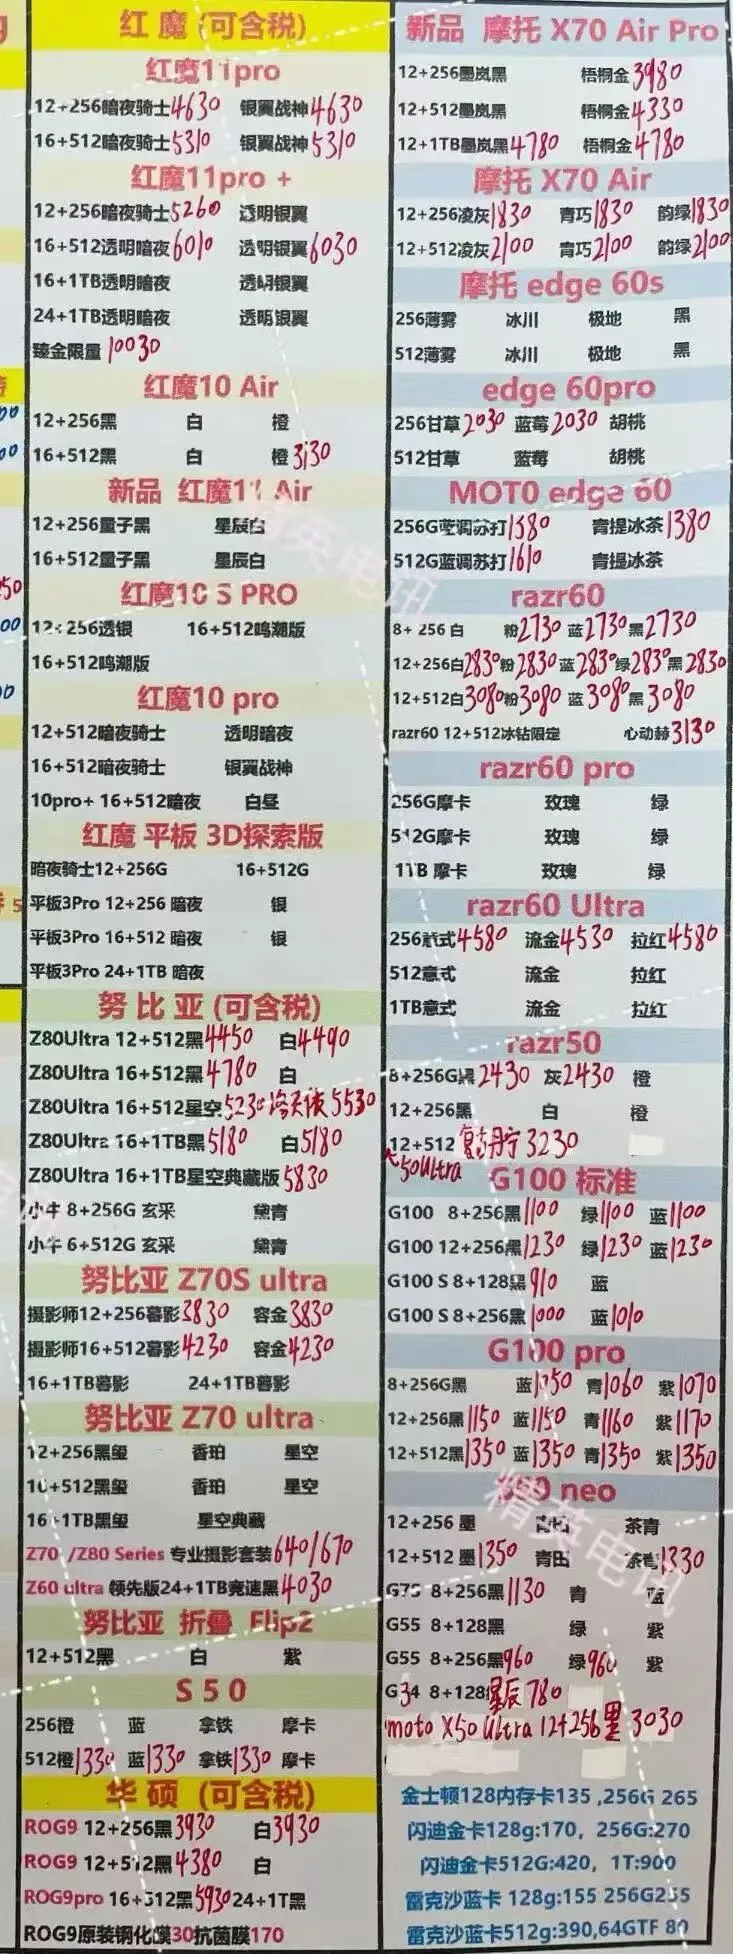 红 魔 (可含税)
红魔11pro
12+256暗夜骑士4630 银翼战神4630
16+512暗夜骑士5310 银翼战神5310
红魔11pro +
12+256暗夜骑士5260 透明银翼
16+512透明暗夜6010 透明银翼6030
16+1TB透明暗夜 透明银翼
24+1TB透明暗夜 透明银翼
臻金限量10030
红魔10 Air
12+256黑 白 橙
16+512黑 白 橙3130
新品 红魔11 Air
12+256量子黑 星辰白
16+512量子黑 星辰白
红魔10 S PRO
12+256透银 16+512鸣潮版
16+512鸣潮版
红魔10 pro
12+512暗夜骑士 透明暗夜
16+512暗夜骑士 银翼战神
10pro+ 16+512暗夜 白昼
红魔 平板 3D探索版
暗夜骑士12+256G 16+512G
平板3Pro 12+256 暗夜 银
平板3Pro 16+512 暗夜 银
平板3Pro 24+1TB 暗夜
努 比 亚 (可含税)
Z80Ultra 12+512黑4450 白4490
Z80Ultra 16+512黑4780 白
Z80Ultra 16+512星空5230 5530
Z80Ultra 16+1TB黑5180 白5180
Z80Ultra 16+1TB星空典藏版5830
小牛 8+256G 玄采 黛青
小牛 6+512G 玄采 黛青
努比亚 Z70S ultra
摄影师12+256暮影3830 容金3830
摄影师16+512暮影4230 容金4230
16+1TB暮影 24+1TB暮影
努比亚 Z70 ultra
12+256黑玺 香珀 星空
16+512黑玺 香珀 星空
16+1TB黑玺 星空典藏
Z70 /Z80 Series 专业摄影套装640/670
Z60 ultra 领先版24+1TB竞速黑4030
努比亚 折叠 Flip2
12+512黑 白 紫
S 5 0
256橙 蓝 拿铁 摩卡
512橙1330 蓝1330 拿铁1330 摩卡
华 硕 (可含税)
ROG9 12+256黑3930 白3930
ROG9 12+512黑4380 白
ROG9pro 16+512黑5930 24+1T黑
ROG9原装钢化膜30抗菌膜170
新品 摩托 X70 Air Pro
12+256墨岚黑 梧桐金3980
12+512墨岚黑 梧桐金4330
12+1TB墨岚黑4780 梧桐金4780
摩托 X70 Air
12+256凌灰1830 青巧1830 韵绿1830
12+512凌灰2100 青巧2100 韵绿2100
摩托 edge 60s
256薄雾 冰川 极地 黑
512薄雾 冰川 极地 黑
edge 60pro
256甘草2030 蓝莓2030 胡桃
512甘草 蓝莓 胡桃
MOTO edge 60
256G蓝调苏打1380 青提冰茶1380
512G蓝调苏打1610 青提冰茶
razr60
8+ 256 白 粉2730 蓝2730 黑2730
12+256白2830 粉2830 蓝2830 绿2830 黑2830
12+512白3080 粉3080 蓝3080 黑3080
razr60 12+512冰钻限定 心动赫3130
razr60 pro
256G摩卡 玫瑰 绿
512G摩卡 玫瑰 绿
1TB 摩卡 玫瑰 绿
razr60 Ultra
256意式4580 流金4530 拉红4580
512意式 流金 拉红
1TB意式 流金 拉红
razr50
8+256G黑2430 灰2430 橙
12+256黑 白 橙
12+512 复古丹宁 3230
50Ultra
G100 标准
G100 8+256黑1100 绿1100 蓝1100
G100 12+256黑1230 绿1230 蓝1230
G100 S 8+128黑910 蓝
G100 S 8+256黑1000 蓝1010
G100 pro
8+256G黑 蓝1050 青1060 紫1070
12+256黑1150 蓝1150 青1160 紫1170
12+512黑1350 蓝1350 青1350 紫1350
neo
12+256 墨 青田 茶青
12+512 墨1350 青田 茶青1330
G75 8+256黑1130 青 蓝
G55 8+128黑 绿 紫
G55 8+256黑960 绿960 紫
G34 8+128星辰 780
moto X50 Ultra 12+256 黑 3030
金士顿128内存卡135 ,256G 265
闪迪金卡128g:170, 256G:270
闪迪金卡512G:420, 1T:900
雷克沙蓝卡 128g:155 256G255
雷克沙蓝卡512g:390,64GTF 80
精英电讯
精英电讯